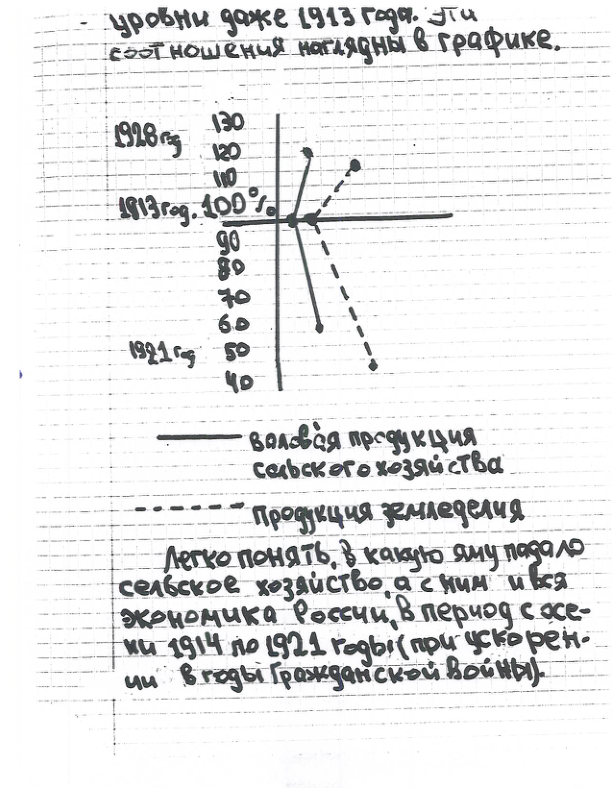 уровни даже 1913 года. Эти
соотношения наглядны в графике.
130
1928 год 120
110
1913 год. 100%
90
80
70
60
1921 год 50
40
валовая продукция
сельского хозяйства
продукция земледелия
Легко понять, в какую яму падало
сельское хозяйство, а с ним и вся
экономика России, в период с осе-
ни 1914 по 1921 годы (при ускорен-
ии в годы Гражданской войны).